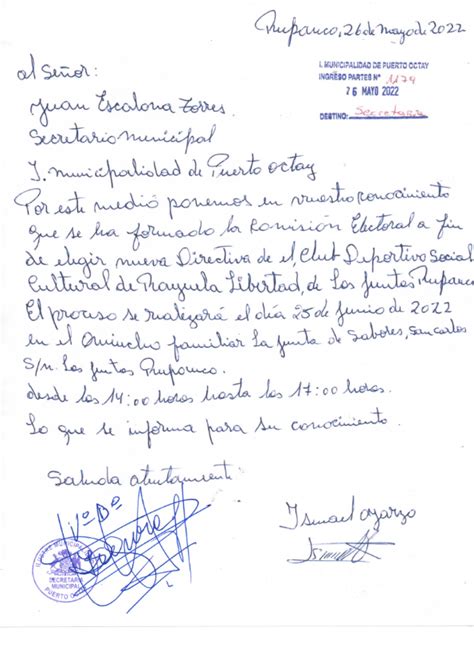 Rupanco, 26 de Mayo de 2022
I. MUNICIPALIDAD DE PUERTO OCTAY
INGRESO PARTES N° 1179
26 MAYO 2022
DESTINO: Secretaria
al Señor:
Juan Escalona Torres
Secretario municipal
I. municipalidad de Puerto octay
Por este medio ponemos en vuestro conocimiento
que se ha formado la Komisión Electoral a fin
de elegir nueva Directiva de el, Club Deportivo Social
Cultural de Rayuela Libertad, de Las Juntas Rupanco
El proceso se realizará el día 25 de Junio de 2022
en el Quincho familiar La Junta de Sabores, San Carlos
S/n. Las Juntas Rupanco.
desde las 14:00 horas hasta las 17:00 horas.
Lo que se informa para su conocimiento.
Saluda atentamente:
V°B°
Ismael Oyarzo
SECRETARIA
MUNICIPAL
PUERTO OCTAY